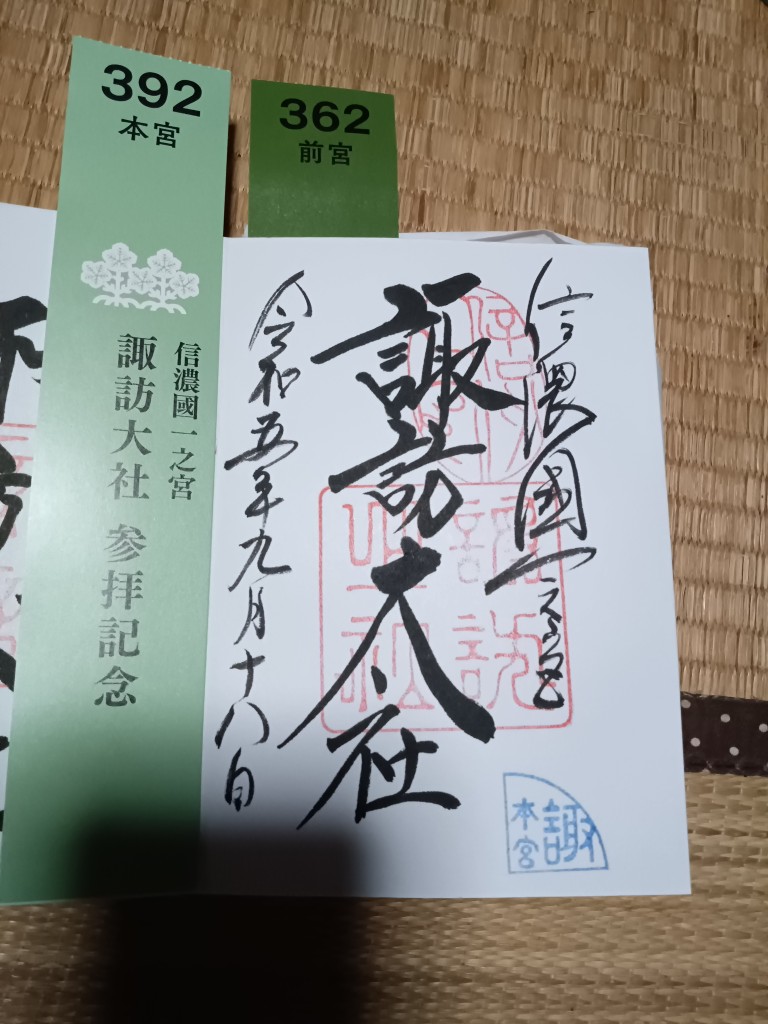 392
本宮
信濃國一之宮
諏訪大社 参拝記念
362
前宮
信濃國一之宮
諏訪大社
令和五年九月十八日
諏訪
大社
諏
本宮